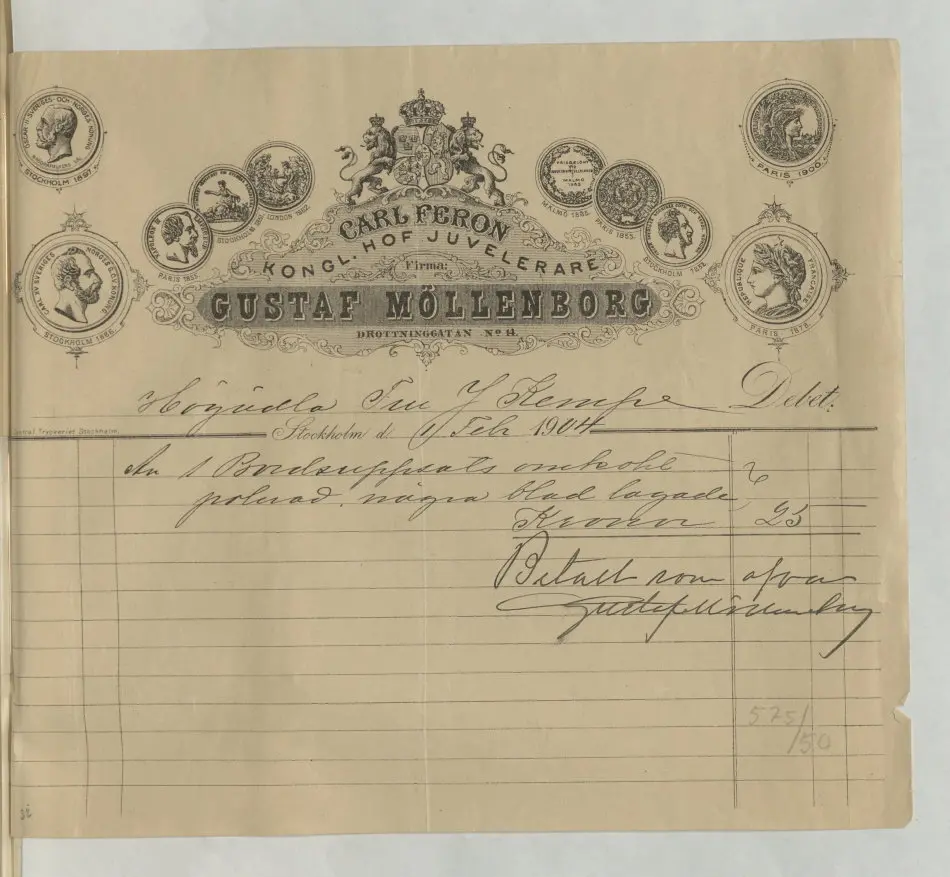 OSCAR II SVERIGES OCH NORGES KONUNG
STOCKHOLM 1897.
PARIS 1900.
STOCKHOLM
LONDON 1862.
MALMÖ
MALMÖ
PARIS 1855.
PARIS
STOCKHOLM
CARL XV SVERIGES NORGES G. O. V. KONUNG
STOCKHOLM 1866.
REPUBLIQUE FRANÇAISE
PARIS 1878.
CARL FERON
KONGL. HOF JUVELERARE
Firma:
GUSTAF MÖLLENBORG
DROTTNINGGATAN No 14.
Högädla Fru J Kempe Debet:
Central Tryckeriet Stockholm.
Stockholm d. Feb 1904
An 1 Bordsuppsats omkokt
polerad, några blad lagade
Kronor 25
Betalt som ofvan
Gustaf Möllenborg
575/
50